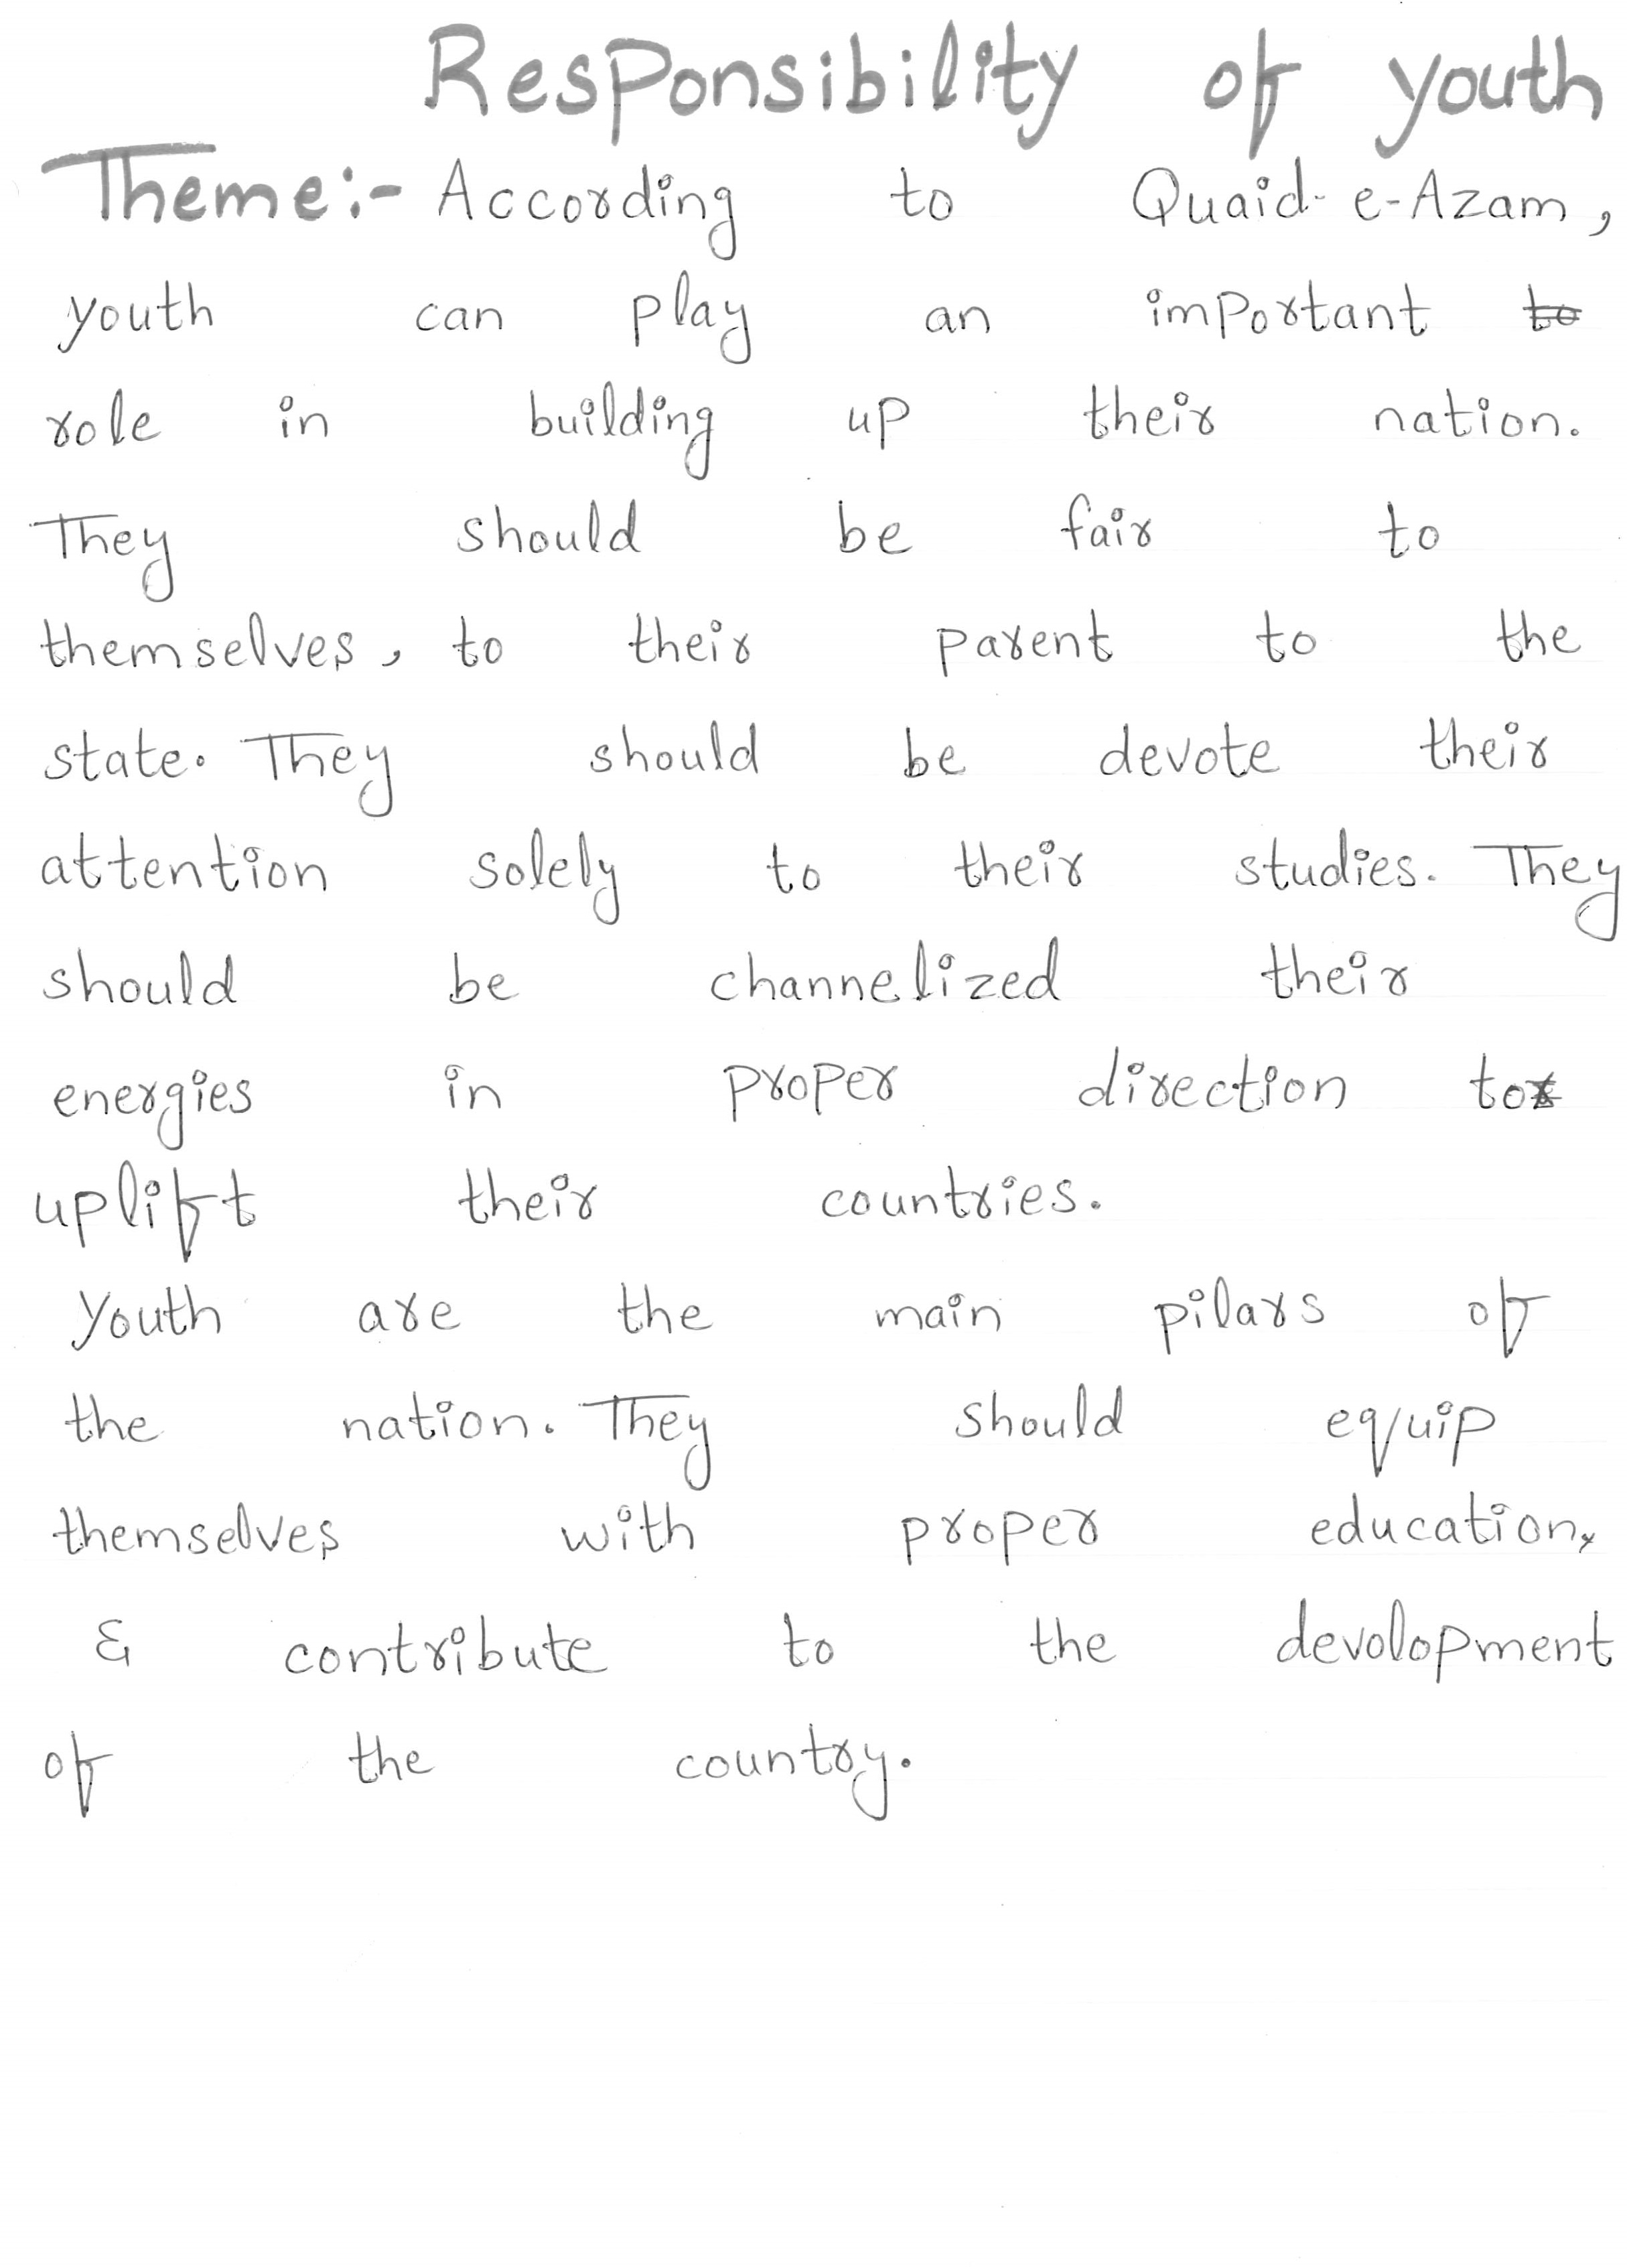 Responsibility of youth
Theme:- According to Quaid-e-Azam,
youth can play an important to
role in building up their nation.
They should be fair to
themselves, to their parent to the
state. They should be devote their
attention solely to their studies. They
should be channelized their
energies in proper direction to
uplift their countries.
Youth are the main pilars of
the nation. They should equip
themselves with proper education,
& contribute to the devolopment
of the country.